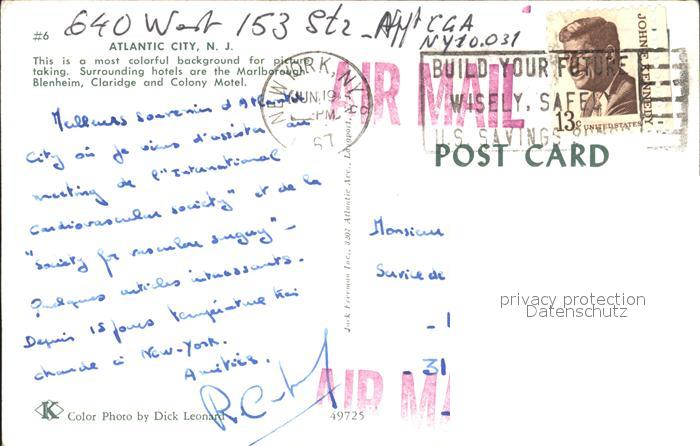 640 West 153 Str - Appt C6A
NY 10.031
#6
ATLANTIC CITY, N. J.
This is a most colorful background for picture
taking. Surrounding hotels are the Marlborough
Blenheim, Claridge and Colony Motel.
Meilleurs souvenirs d'Atlantic
City où je viens d'assister au
meeting de l'"International
Cardiovascular society" et de la
"Society for vascular surgery" -
Quelques articles intéressants.
Depuis 15 jours température très
chaude à New-York.
Amitiés.
Color Photo by Dick Leonard
49725
Jack Freeman Inc., 3207 Atlantic Ave., Longport, N.J.
NEW YORK, N.Y.
JUN 19
PM
67
AIR MAIL
BUILD YOUR FUTURE
WISELY, SAFELY
U.S. SAVINGS
JOHN F. KENNEDY
13c UNITED STATES
POST CARD
Monsieur
Service de
- 31
AIR MA
privacy protection
Datenschutz